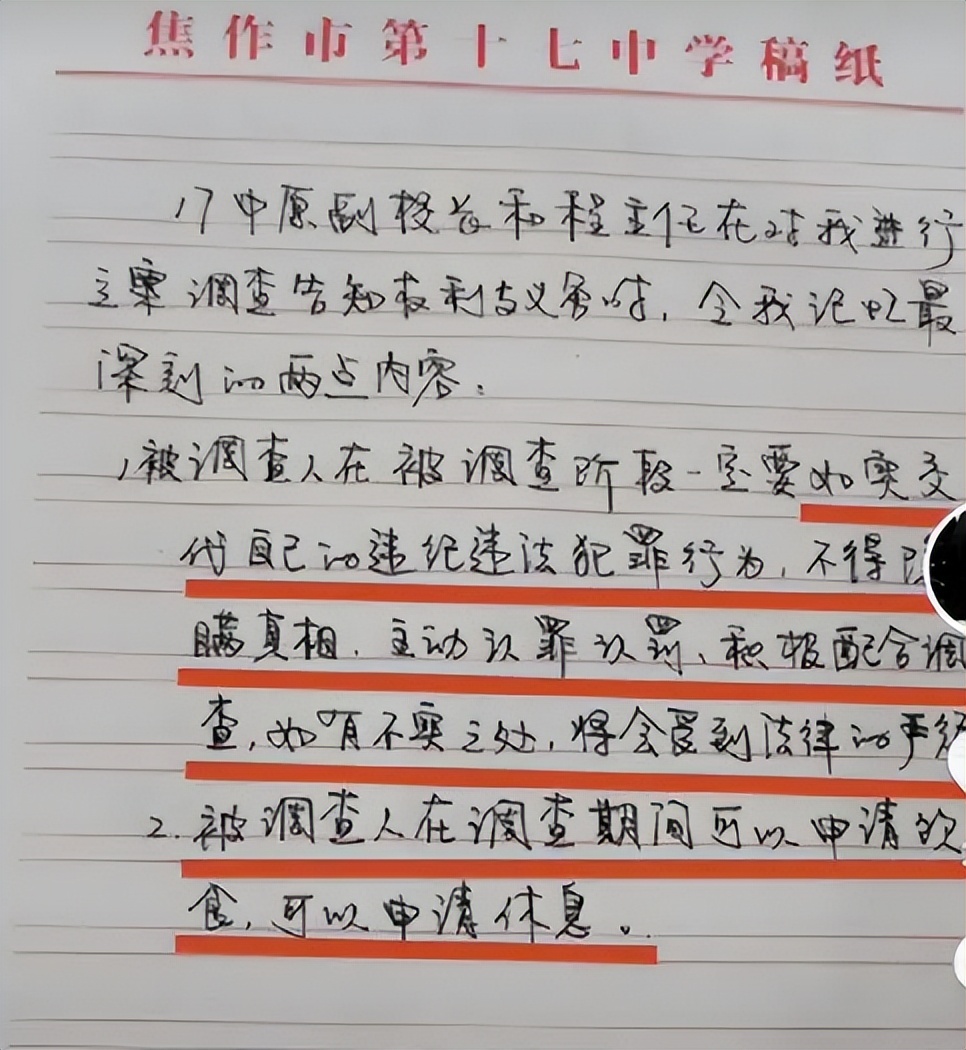 焦作市第十七中学稿纸
17中原副校长和程主任在对我进行
立案调查告知权利与义务时，令我记忆最
深刻的两点内容：
1、被调查人在被调查阶段一定要如实交
代自己的违纪违法犯罪行为，不得
瞒真相，主动认罪认罚、积极配合调
查，如有不实之处，将会受到法律的严
2. 被调查人在调查期间可以申请饮
食，可以申请休息。